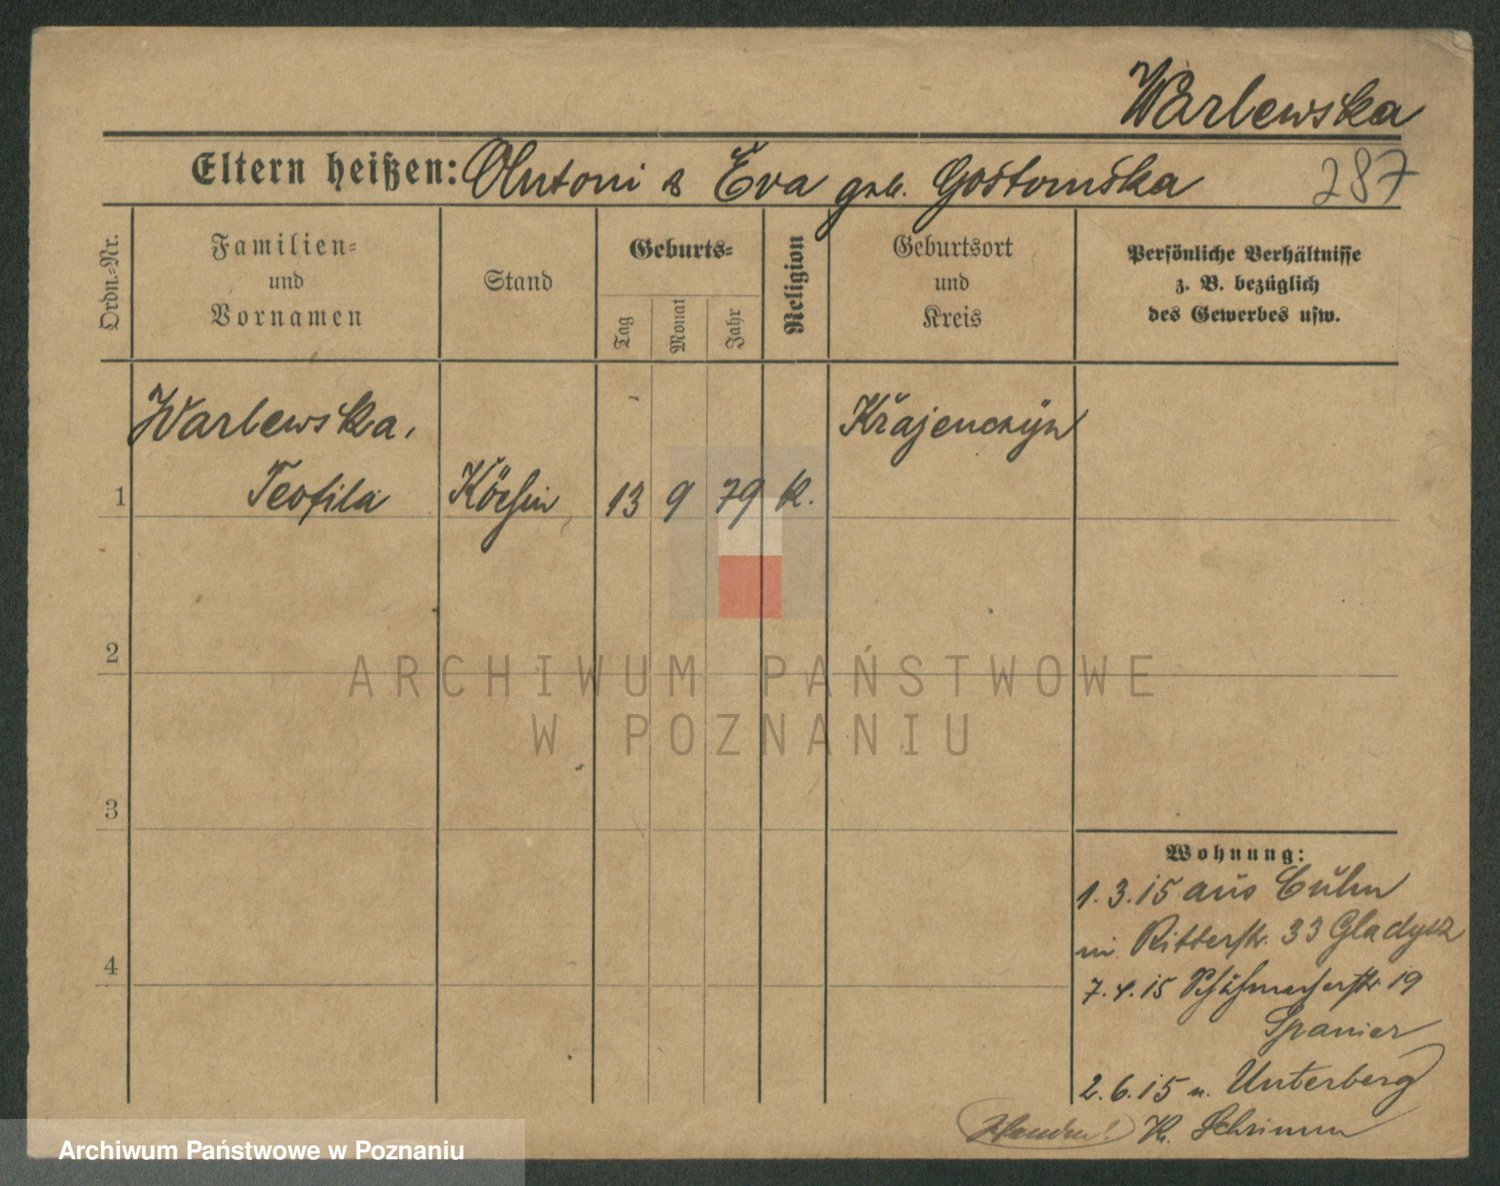 Warlewska
Eltern heißen: Antoni & Eva geb. Gostomska 287
Ordn.-Nr.
Familien-
und
Vornamen
Stand
Geburts-
Tag
Monat
Jahr
Religion
Geburtsort
und
Kreis
Persönliche Verhältnisse
z. B. bezüglich
des Gewerbes usw.
Warlewska, Krajenczyn
1 Teofila Köchin 13 9 79 k.
2
ARCHIWUM PAŃSTWOWE
W POZNANIU
3
Wohnung:
1.3.15 aus Culm
in Ritterstr. 33 Gladysz
4
7.4.15 Schuhmacherstr 19
Spanier
2.6.15 n. Unterberg
K. Schrimm
Archiwum Państwowe w Poznaniu